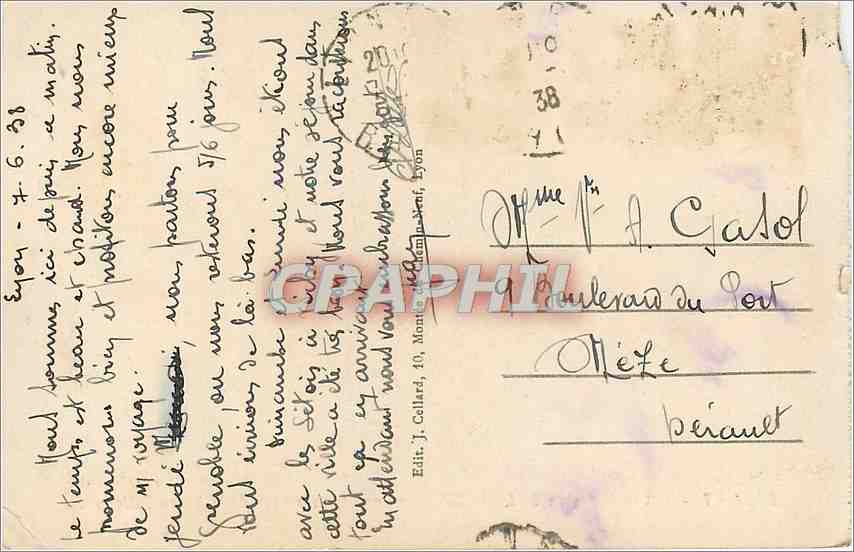 Lyon - 7. 6. 38
Nous sommes ici depuis ce matin.
Le temps est beau et chaud. Nous nous
promenons bien et profitons encore mieux
de ce voyage.
Jeudi, nous partons pour
Grenoble, ou nous resterons 5/6 jours. Nous
vous écrirons de là bas.
Dimanche et lundi nous étions
avec les Sétois à et notre séjour dans
cette ville a été très Nous vous raconterons
tout ça en arrivant.
En attendant nous vous embrassons bien fort
Edit. J. Cellard, 10, Montée du Chemin-Neuf, Lyon
38
Mme Vve A. Gasol
9 Boulevard du Port
Mèze
Hérault
CRAPHIL